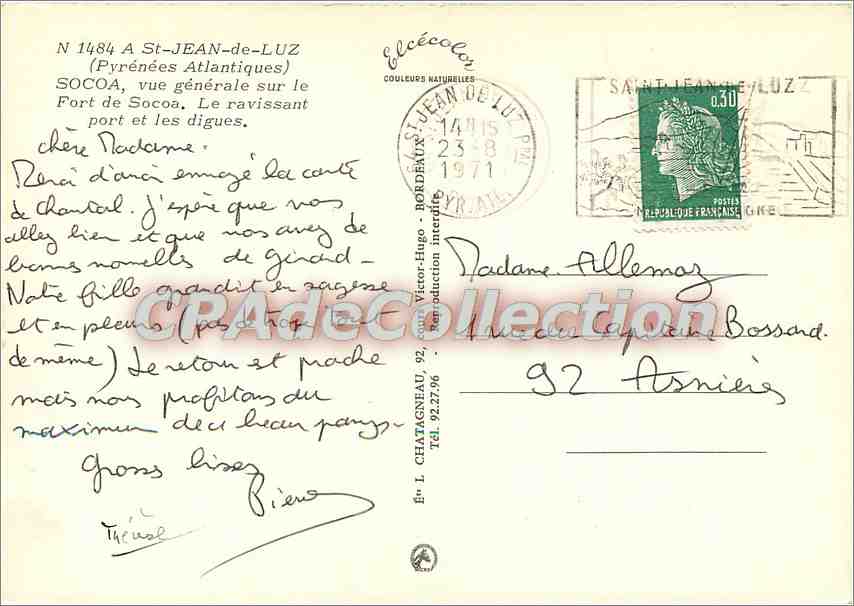 N 1484 A St-JEAN-de-LUZ
(Pyrénées Atlantiques)
SOCOA, vue générale sur le
Fort de Socoa. Le ravissant
port et les digues.
Elcécolor
COULEURS NATURELLES
chère Madame.
Merci d'avoir envoyé la carte
de Chantal. J'espère que vous
allez bien et que vous avez de
bonnes nouvelles de Gérard-
Notre fille grandit en sagesse
et en pleurs (pas de trop tout
de même) Le retour est proche
mais nous profitons au
maximum de ce beau pays-
Grosses bises
Pierre
Thérèse
St JEAN DE LUZ Ppal
14H15
23-8
1971
PYR. ATL.
SAINT JEAN DE LUZ
0,30
POSTES
REPUBLIQUE FRANÇAISE
Madame Allemoz
4 rue du Capitaine Bossard.
92 Asnières
Éts L. CHATAGNEAU, 92, cours Victor-Hugo - BORDEAUX
Tél. 92.27.96 - Reproduction interdite
CPAdeCollection